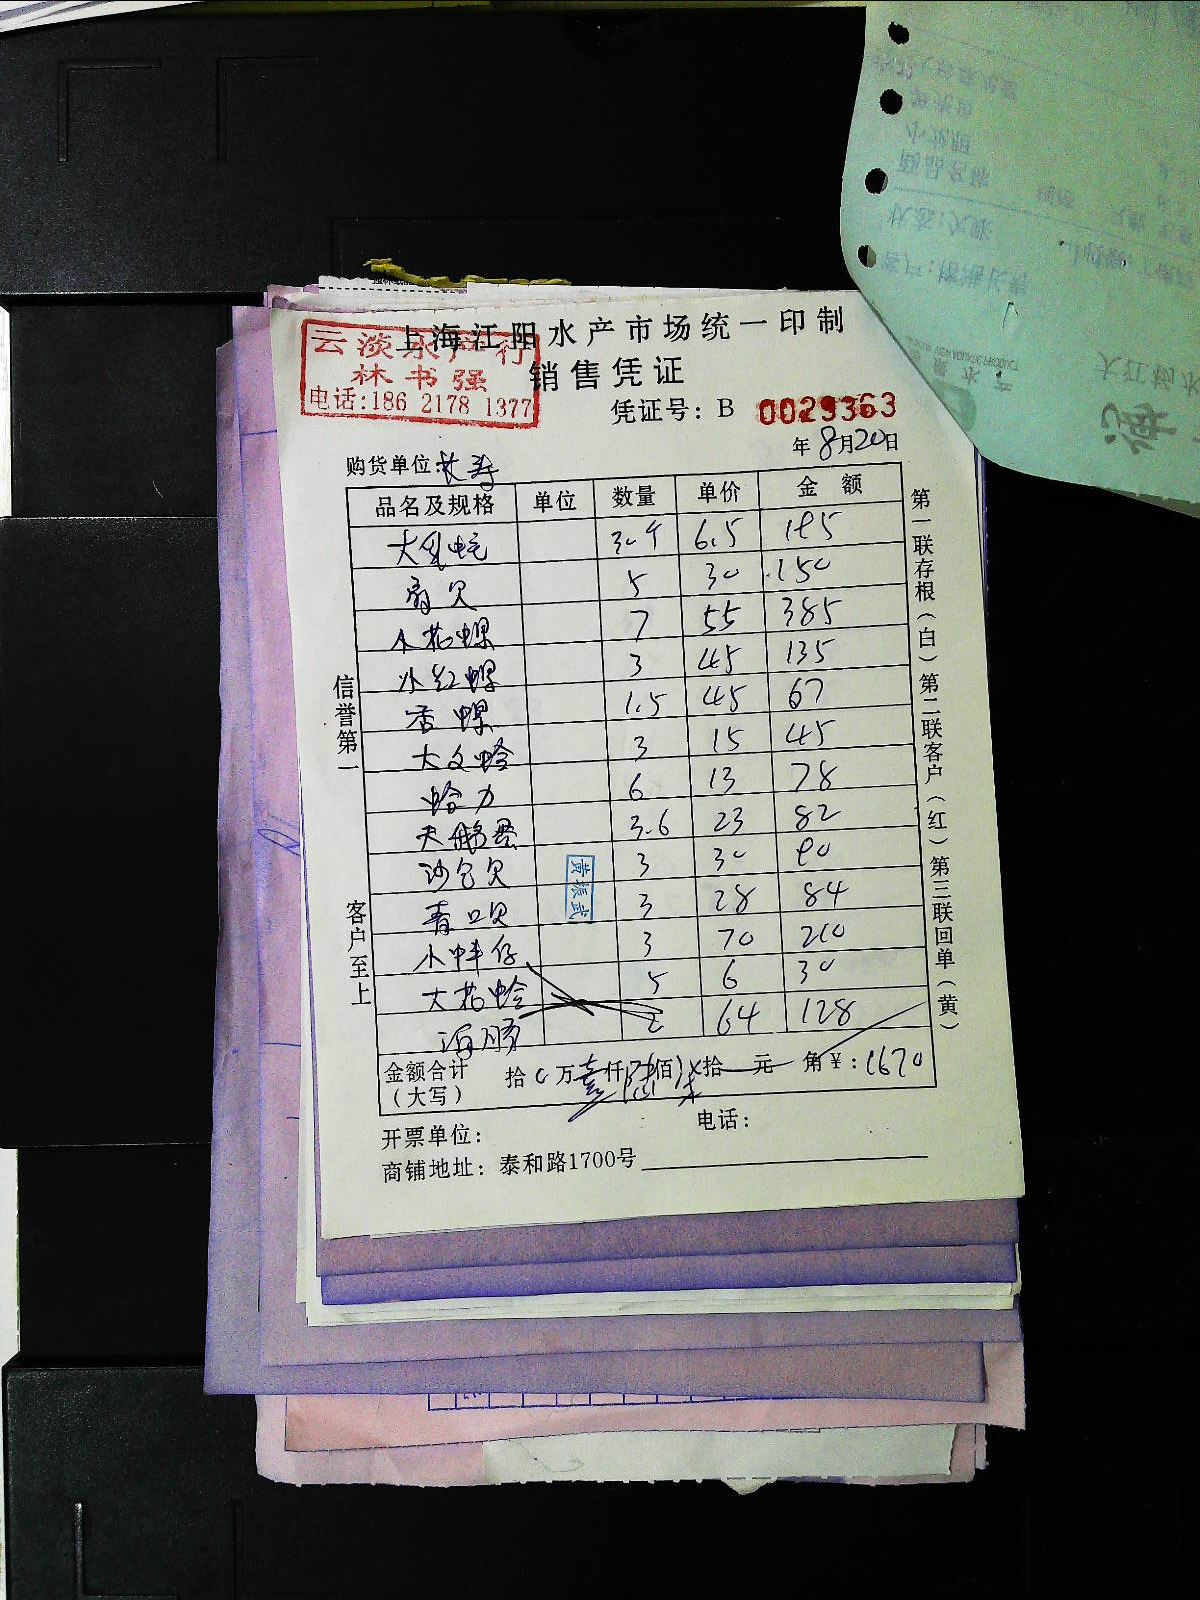 上海江阳水产市场统一印制
云淡水产行
林书强
电话:186 2178 1377
销售凭证
凭证号: B 0029363
年8月20日
购货单位:长寿
品名及规格 单位 数量 单价 金额
大生蚝 30个 6.5 195
扇贝 5 30 150
小花螺 7 55 385
小红螺 3 45 135
香螺 1.5 45 67
大文蛤 3 15 45
蛤力 6 13 78
天鹅蛋 3.6 23 82
沙包贝 3 30 90
青口贝 3 28 84
小蚌仔 3 70 210
大花蛤 5 6 30
海肠 2 64 128
金额合计(大写) 拾0万壹仟陆佰柒拾一元 角¥:1670
开票单位: 电话:
商铺地址: 泰和路1700号
信誉第一 客户至上
第一联存根(白)第二联客户(红)第三联回单(黄)
黄振武